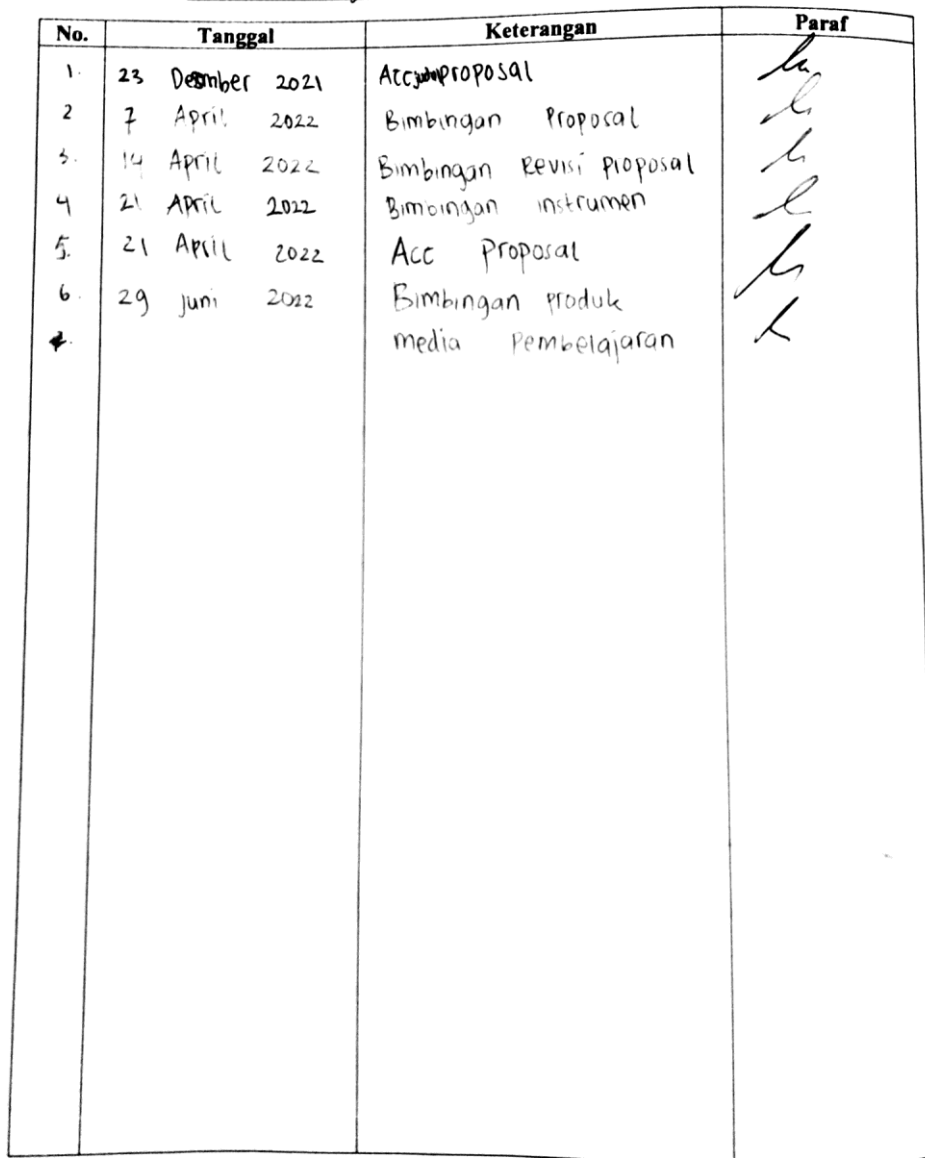 No. Tanggal Keterangan Paraf
1. 23 Desember 2021 Acc proposal
2 7 April 2022 Bimbingan Proposal
3. 14 April 2022 Bimbingan Revisi proposal
4 21 April 2022 Bimbingan instrumen
5. 21 April 2022 Acc Proposal
6. 29 juni 2022 Bimbingan produk
media Pembelajaran